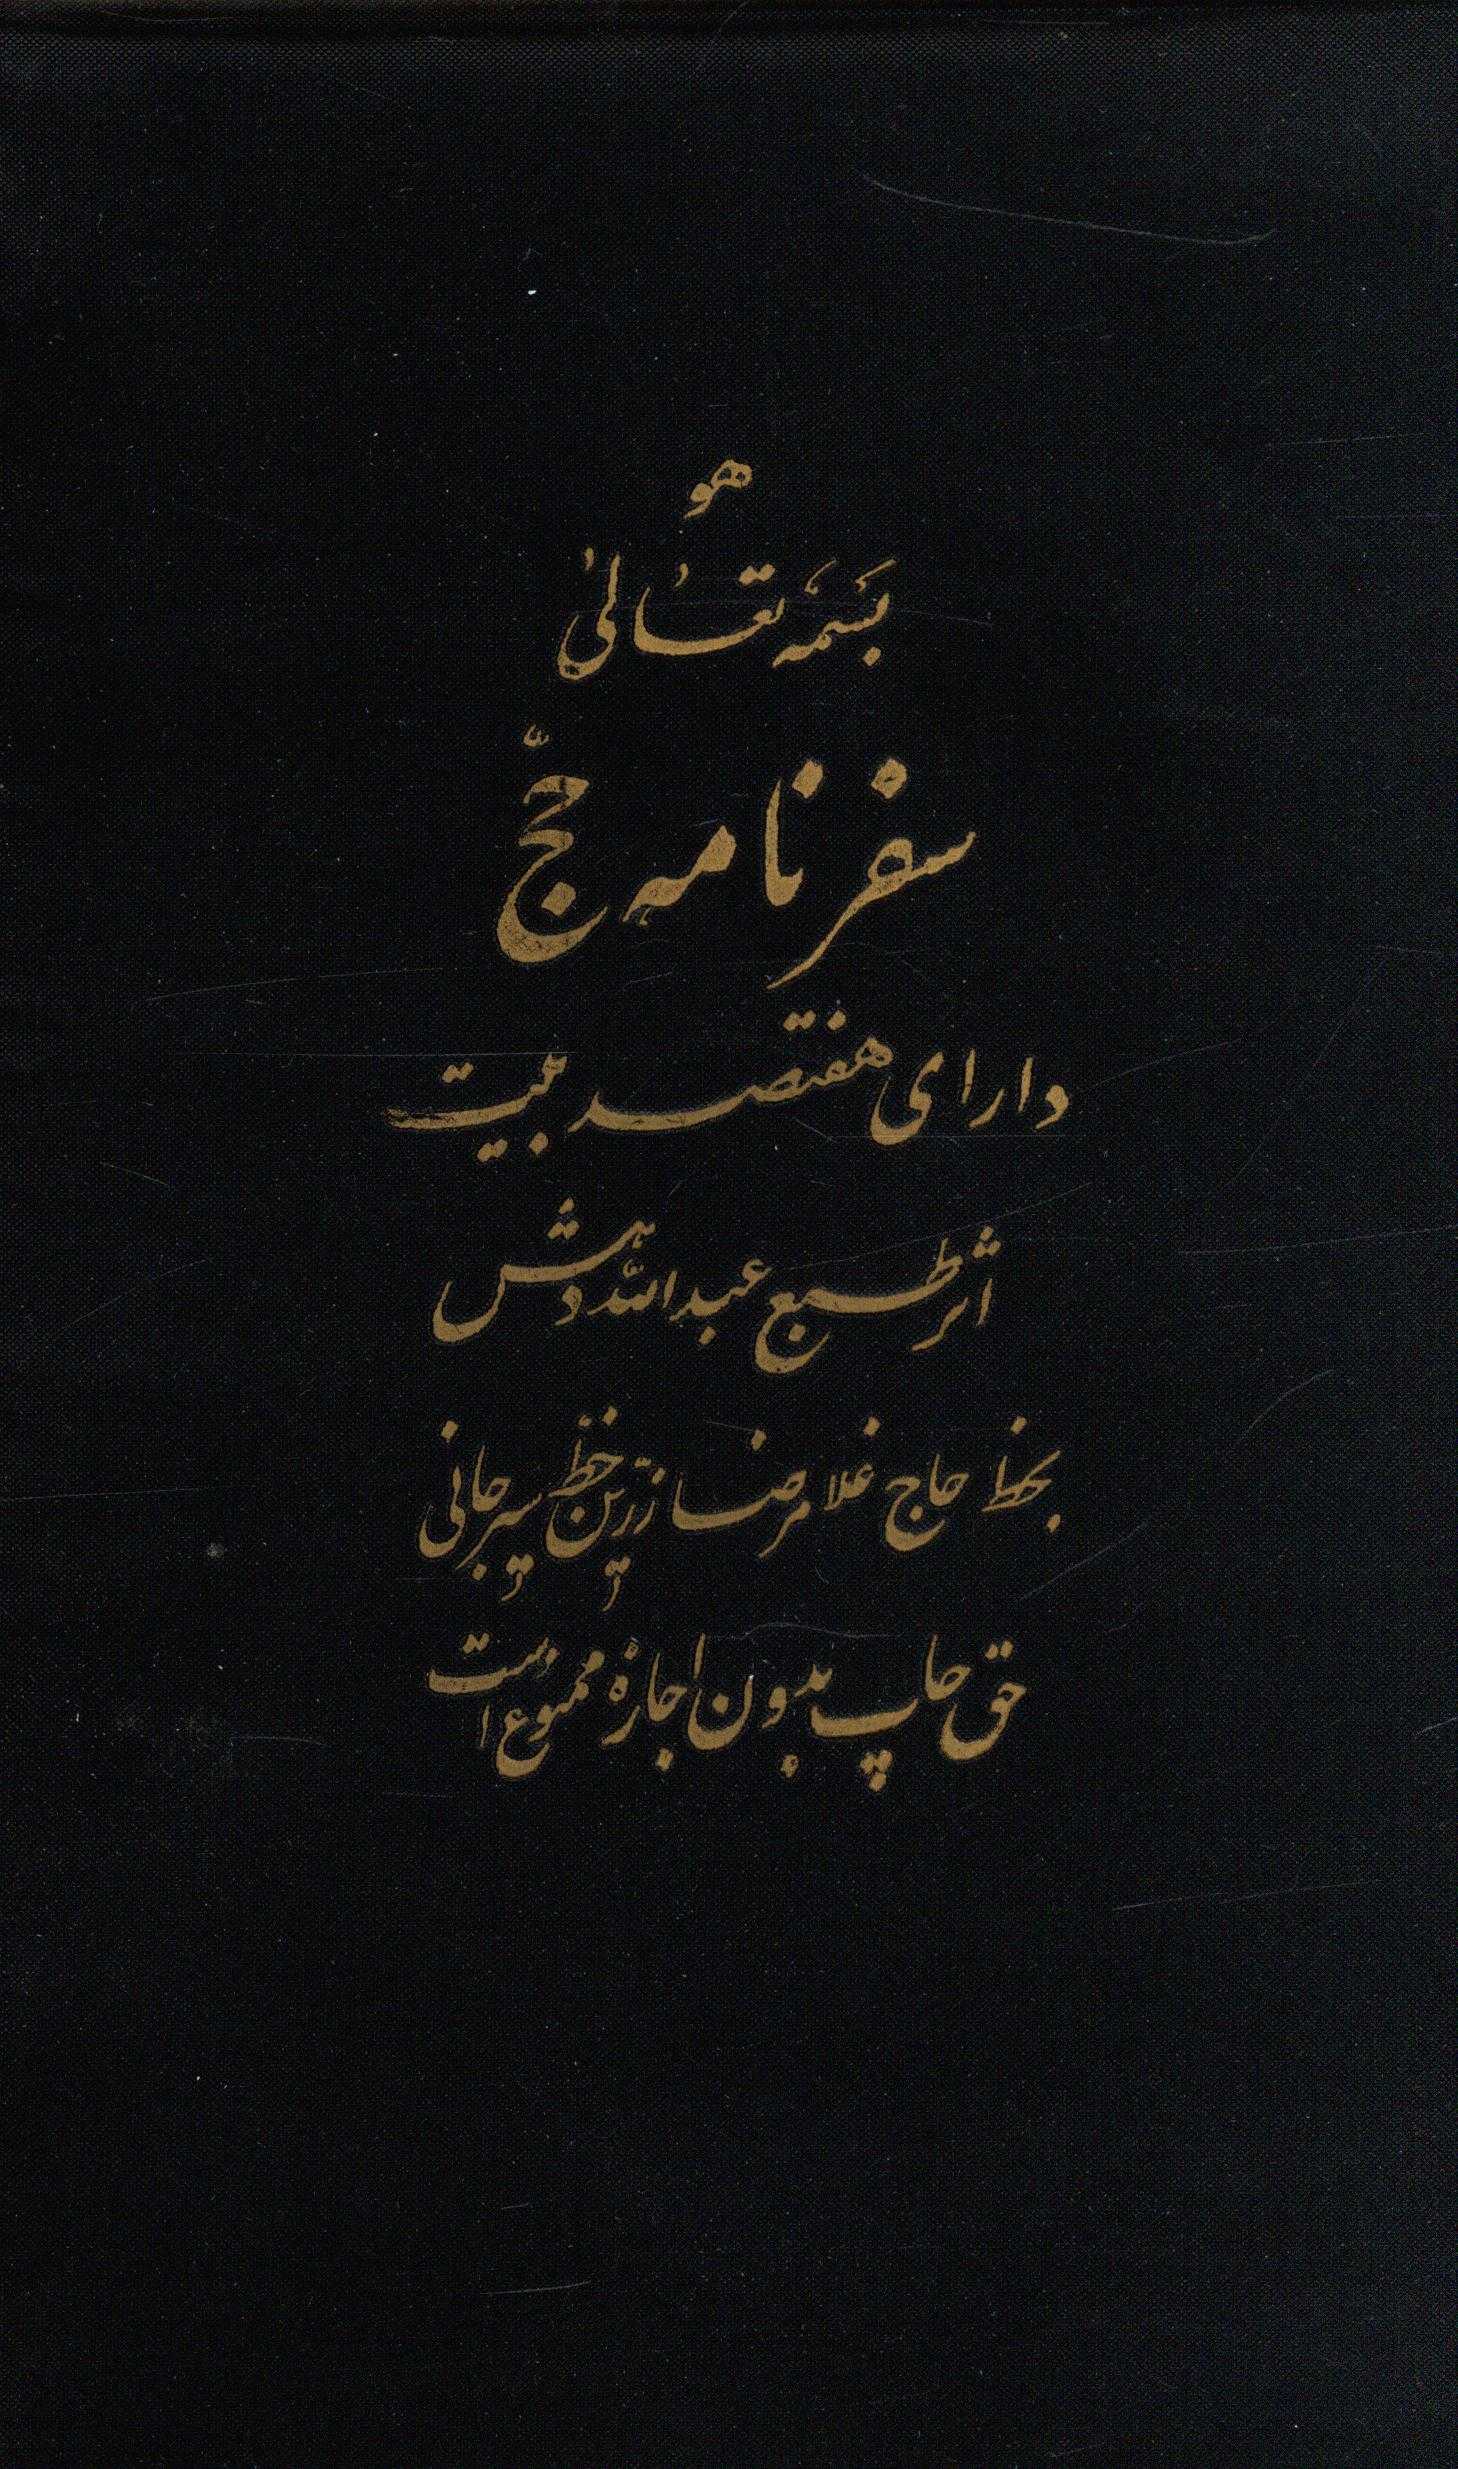 هو
بسمه تعالی
سفرنامه حجّ
دارای هفتصد بیت
اثر طبع عبدالله دهش
بخط حاج غلامرضا زرّین خطّ سیرجانی
حق چاپ بدون اجازهٔ ممنوع است